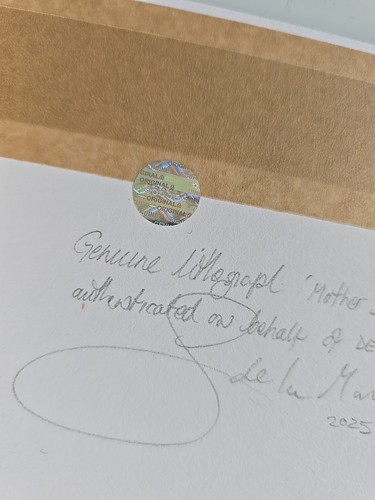 ORIGINAL®
ORIGINAL®
ORIGINAL®
ORIGINAL®
Genuine lithograph "Mother
authenticated on behalf of DE
de la Mar
2025